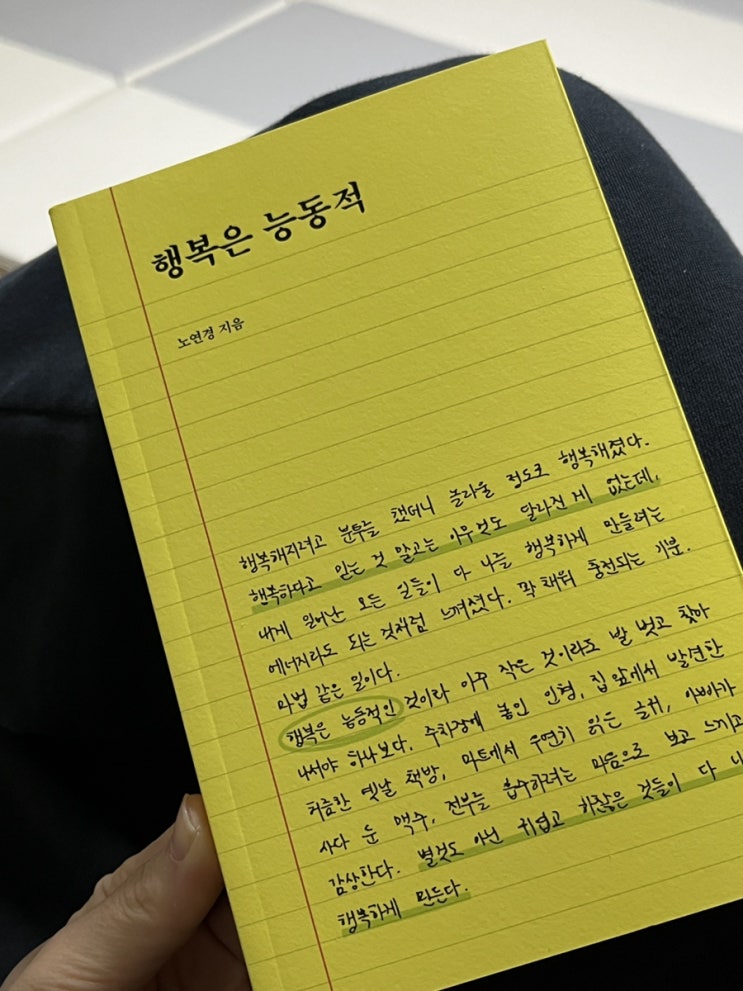 행복은 능동적
노연경 지음
행복해지려고 분투를 했더니 놀라울 정도로 행복해졌다.
행복하다고 믿는 것 말고는 아무것도 달라진 게 없는데,
내게 일어난 모든 일들이 다 나를 행복하게 만들려는
에너지라도 되는 것처럼 느껴졌다. 꽉 채워 충전되는 기분.
마법 같은 일이다.
행복은 능동적인 것이라 아주 작은 것이라도 발 벗고 찾아
나서야 하나보다. 주차장에 놓인 인형, 집 앞에서 발견한
허름한 옛날 책방, 마트에서 우연히 읽은 글귀, 아빠가
사다 둔 맥주, 전부를 흡수하려는 마음으로 보고 느끼고
감상한다. 별것도 아닌 귀엽고 하찮은 것들이 다 나
행복하게 만든다.